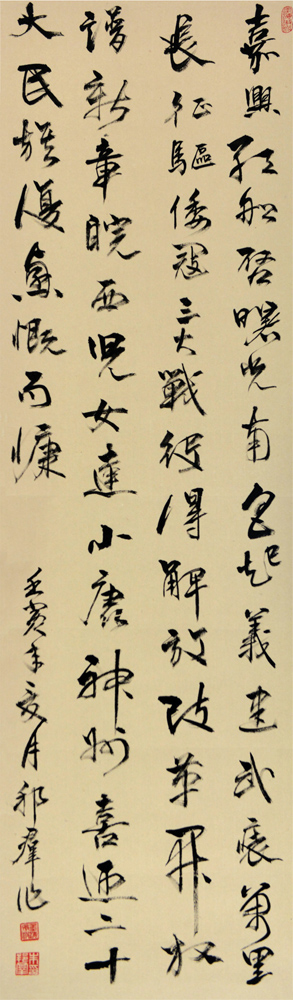 嘉興紅船啓曙光南昌起義建武裝萬里
長征驅倭寇三大戰役得解放改革開放
譜新章皖西兒女達小康神州喜迎二十
大民族復興慨而慷
壬寅年夏月羣作